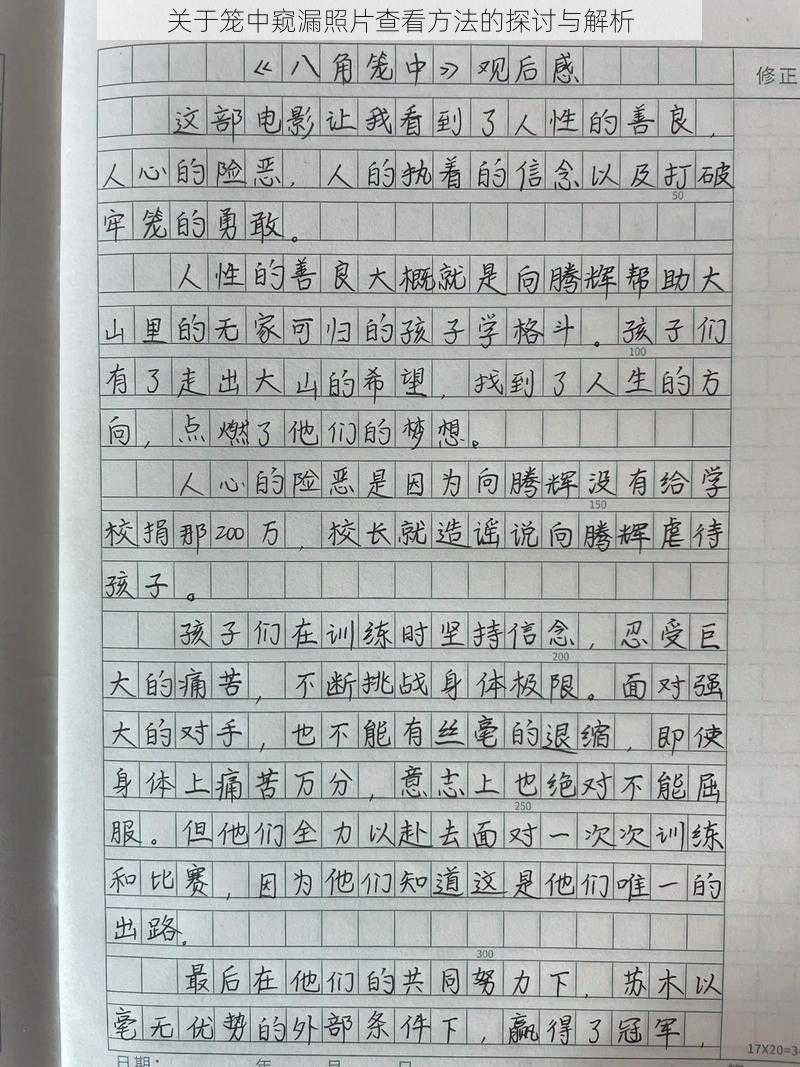 关于笼中窥漏照片查看方法的探讨与解析
《八角笼中》观后感
修正
这部电影让我看到了人性的善良，
人心的险恶，人的执着的信念以及打破
50
牢笼的勇敢。
人性的善良大概就是向腾辉帮助大
山里的无家可归的孩子学格斗。孩子们
100
有了走出大山的希望，找到了人生的方
向，点燃了他们的梦想。
人心的险恶是因为向腾辉没有给学
150
校捐那200万，校长就造谣说向腾辉虐待
孩子。
孩子们在训练时坚持信念，忍受巨
200
大的痛苦，不断挑战身体极限。面对强
大的对手，也不能有丝毫的退缩，即使
身体上痛苦万分，意志上也绝对不能屈
250
服。但他们全力以赴去面对一次次训练
和比赛，因为他们知道这是他们唯一的
出路。
300
最后在他们的共同努力下，苏木以
毫无优势的外部条件下，赢得了冠军，
17X20=3
日期： 年 月 日